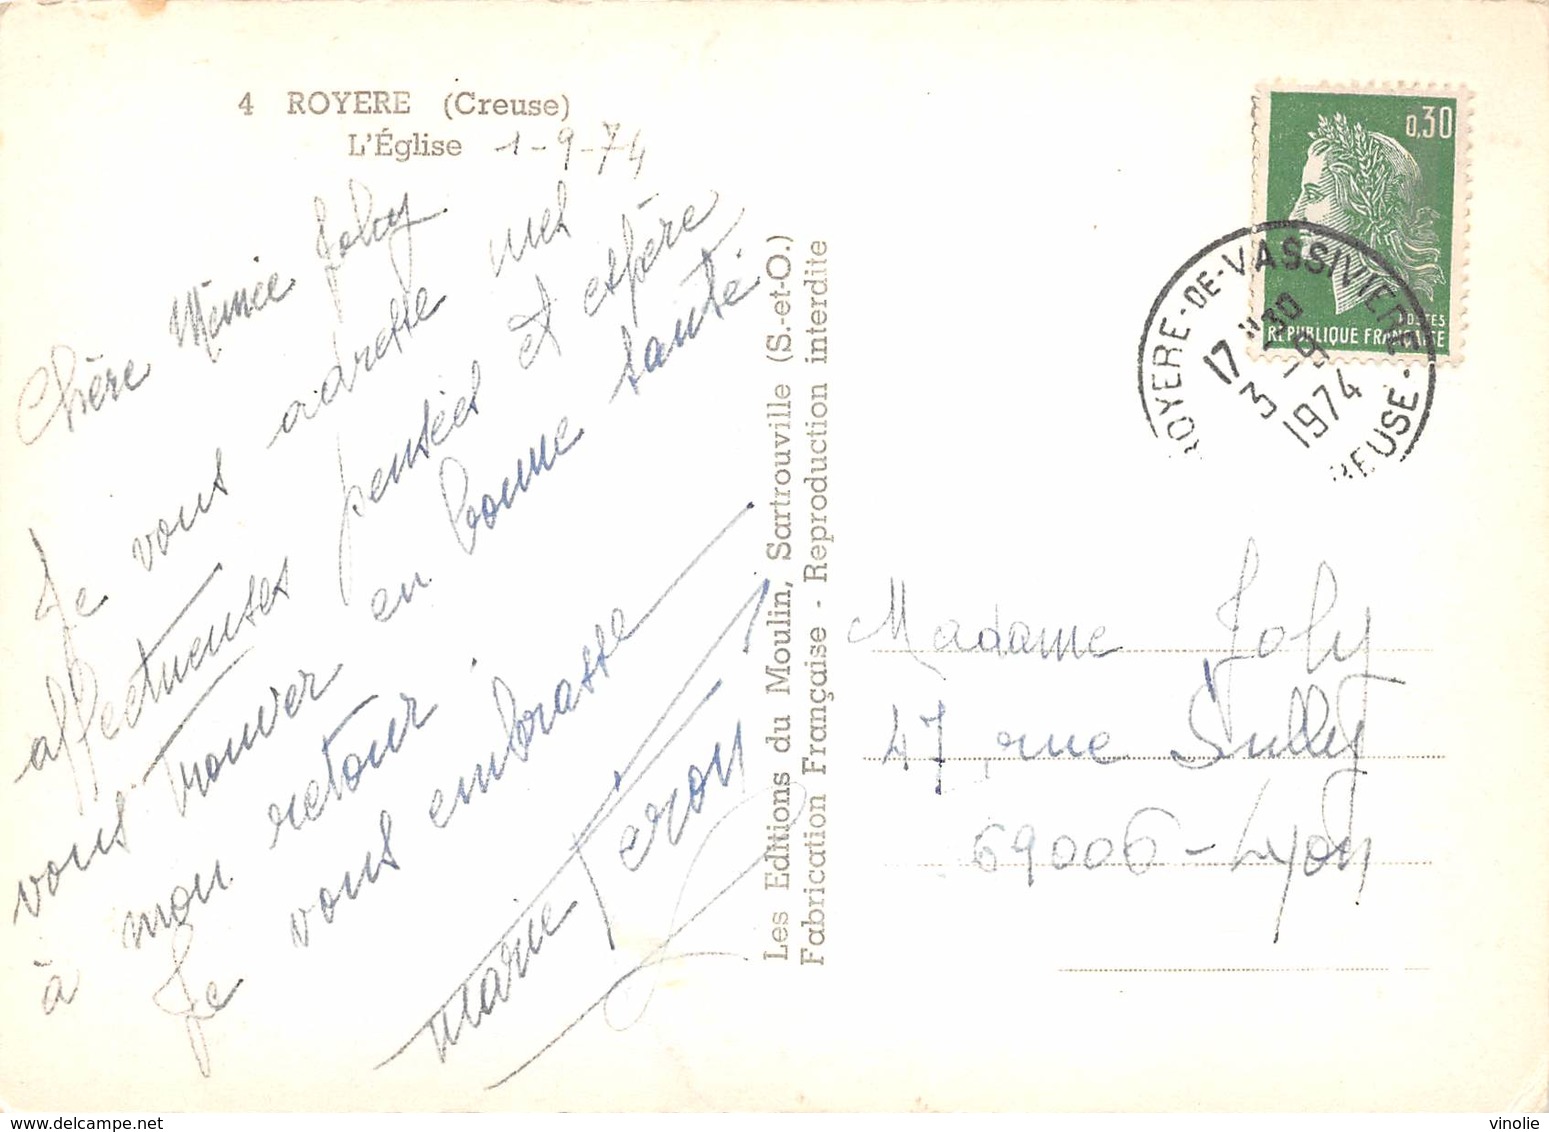 4 ROYERE (Creuse)
L'Église 1-9-74
Chère Mémée Joly
Je vous adresse mes
affectueuses pensées et espère
vous trouver en bonne santé
à mon retour.
Je vous embrasse
Marie
Les Editions du Moulin, Sartrouville (S.-et-O.)
Fabrication Française - Reproduction interdite
0,30
POSTES
REPUBLIQUE FRANÇAISE
ROYERE-DE-VASSIVIERE
17H30
3-9
1974
CREUSE
Madame Joly
47, rue Sully
69006-Lyon
www.delcampe.net
vinolie